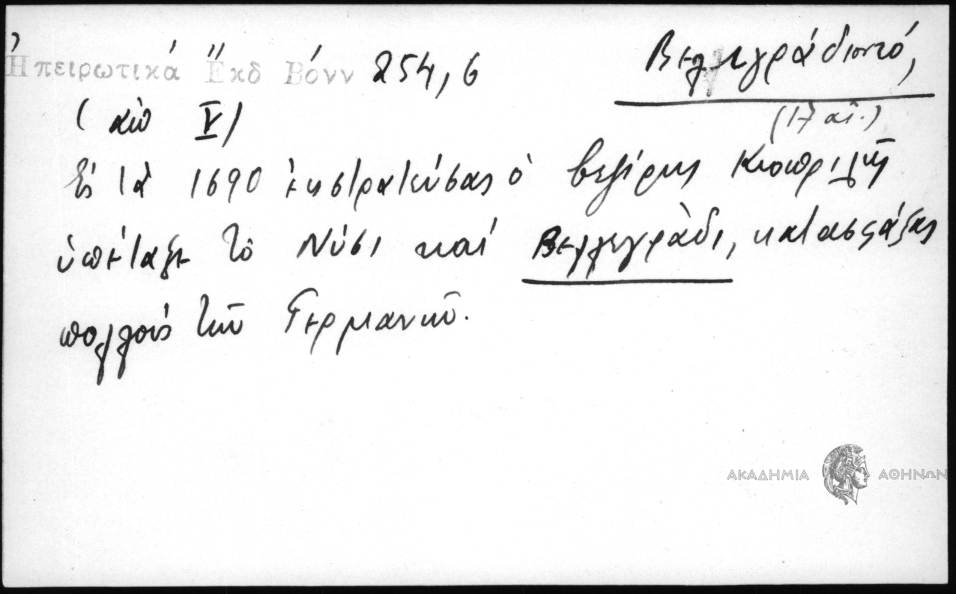 Ἠπειρωτικά Ἔκδ Βόνν 254,6
Βελιγράδι τό,
(17 αἰ.)
( αἰὼ V )
Εἰς τὰ 1690 ἐκστρατεύσας ὁ βεζίρης Κιοπριλῆς
ὑπέταξε τὸ Νύσι καί Βελλιγράδι, κατασφάξας
πολλούς τῶν Γερμανῶν.
ΑΚΑΔΗΜΙΑ ΑΘΗΝΩΝ